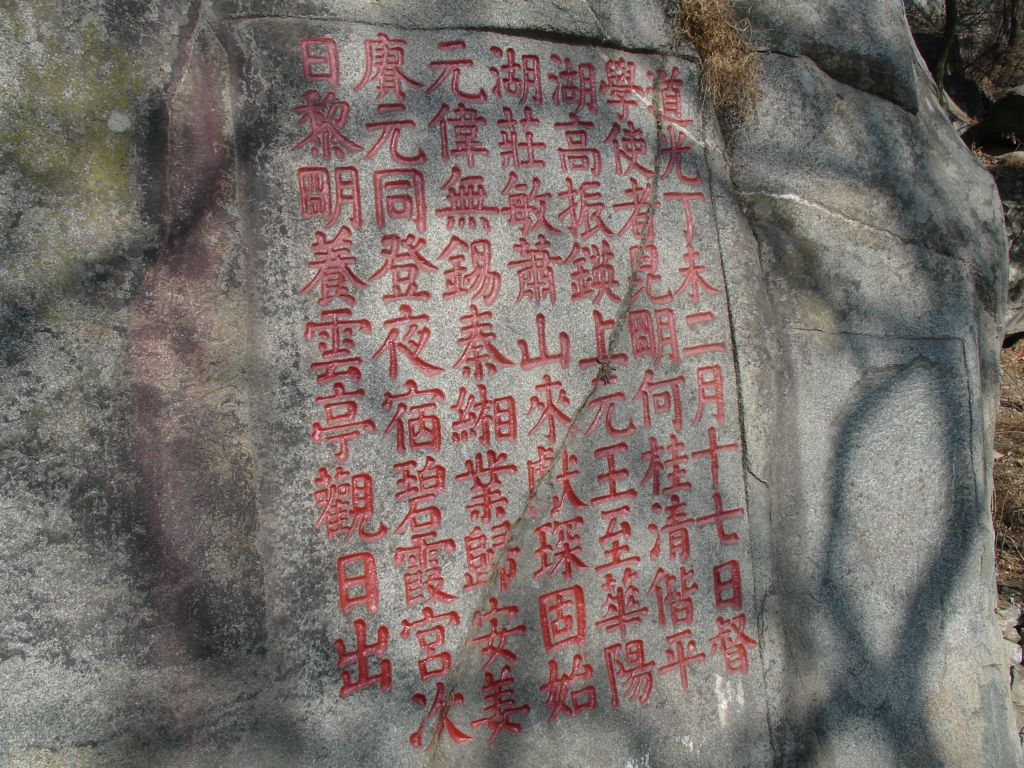 道光丁未二月十七日督
學使者昆明何桂清偕平
湖高振鍈上元王至華陽
湖莊敏蕭山來獻琛固始
元偉無錫秦緗業歸安姜
賡元同登夜宿碧霞宮次
日黎明養雲亭觀日出